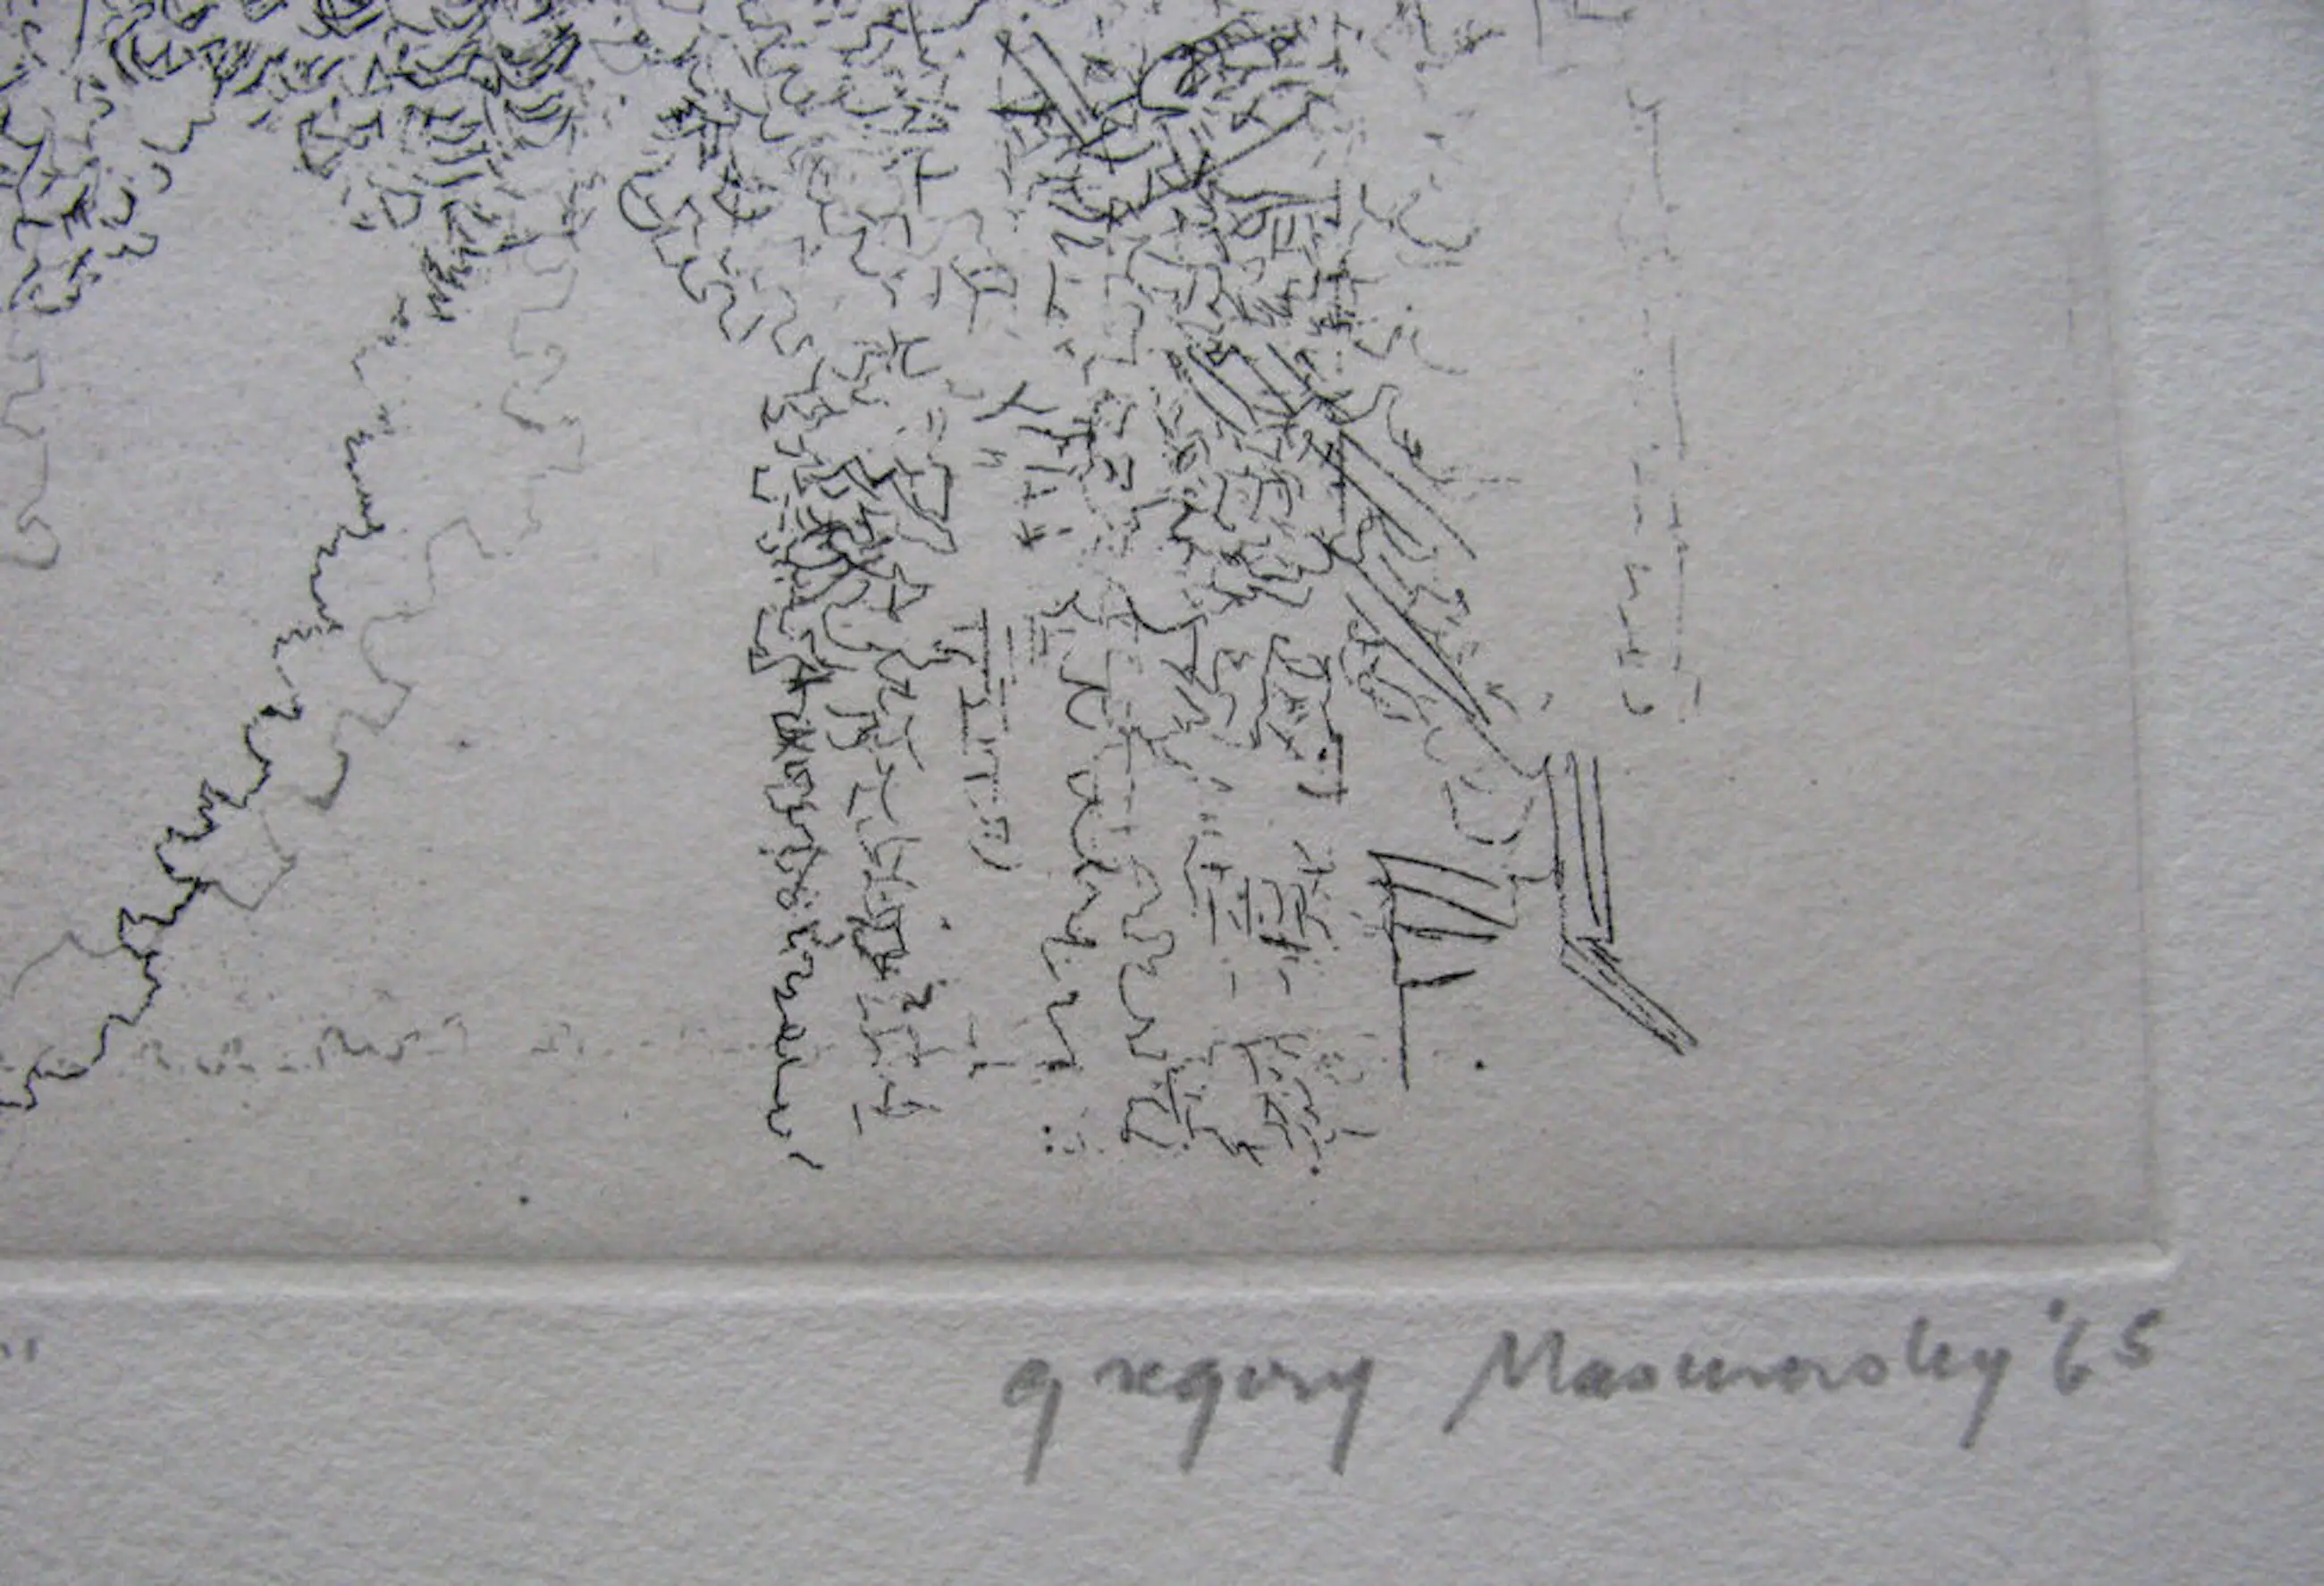 gregory Masurovsky '65